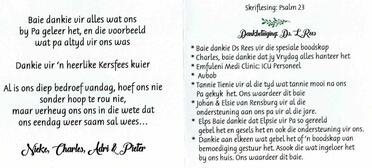 Baie dankie vir alles wat ons
by Pa geleer het, en die voorbeeld
wat pa altyd vir ons was
Dankie vir 'n heerlike Kersfees kuier
Al is ons diep bedroef vandag, hoef ons nie
sonder hoop te rou nie,
maar verheug ons ons in die wete dat
ons eendag weer saam sal wees...
Nieke, Charles, Adri & Pieter
Skriflesing: Psalm 23
Dankbetuiging: Ds. L Rees
* Baie dankie Ds Rees vir die spesiale boodskap
* Charles, baie dankie dat jy Vrydag alles hanteer het
* Emfuleni Medi Clinic: ICU Personeel
* Avbob
* Tannie Tienie vir al die tyd wat tannie mooi na ons
Pa gekyk het. Ons waardeer dit baie
* Johan & Elsie van Rensburg vir al die
ondersteuning aan ons pa vir al die jare.
* Elps Baie dankie dat Elpsie vir Pa so gereeld
gebel het en gesels het en ook die ondersteuning vir ons.
* Dankie aan elkeen wat gebel het of 'n boodskap van
bemoediging gestuur het. Asook die wat ingeloer het
by ons huis. Ons waardeer dit baie.